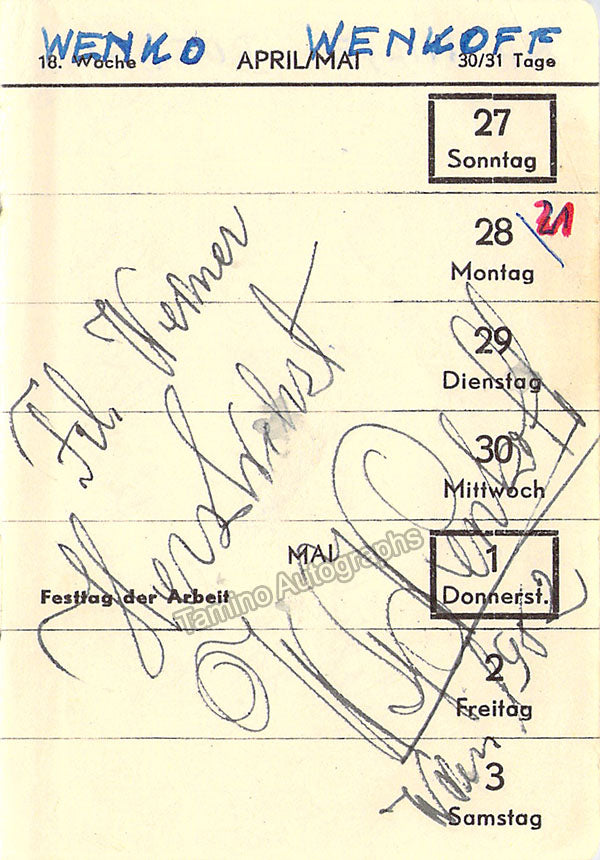 WENKO WENKOFF
18. Woche APRIL/MAI 30/31 Tage
27
Sonntag
28 21
Montag
29
Dienstag
30
Mittwoch
MAI
1
Festtag der Arbeit Donnerst.
2
Freitag
3
Samstag
Frl. Werner
Herzlichst
Wenkoff
Wien, 1982
Tamino Autographs